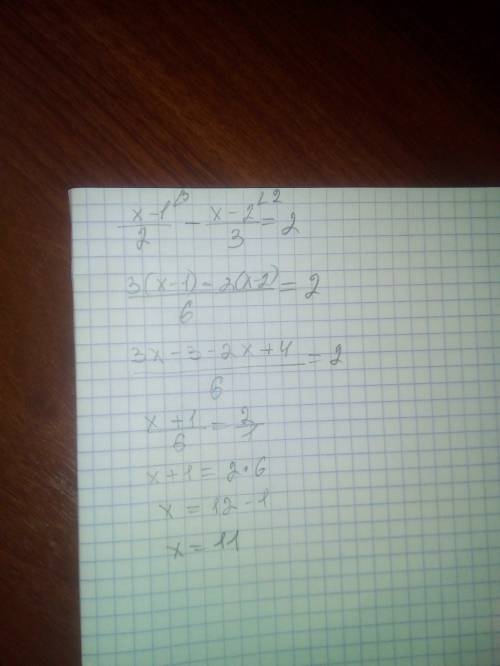 (x-1)/2 ⌊3 - (x-2)/3 ⌊2 = 2
(3(x-1) - 2(x-2))/6 = 2
(3x-3-2x+4)/6 = 2
(x+1)/6 = 2/1
x+1 = 2·6
x = 12-1
x = 11